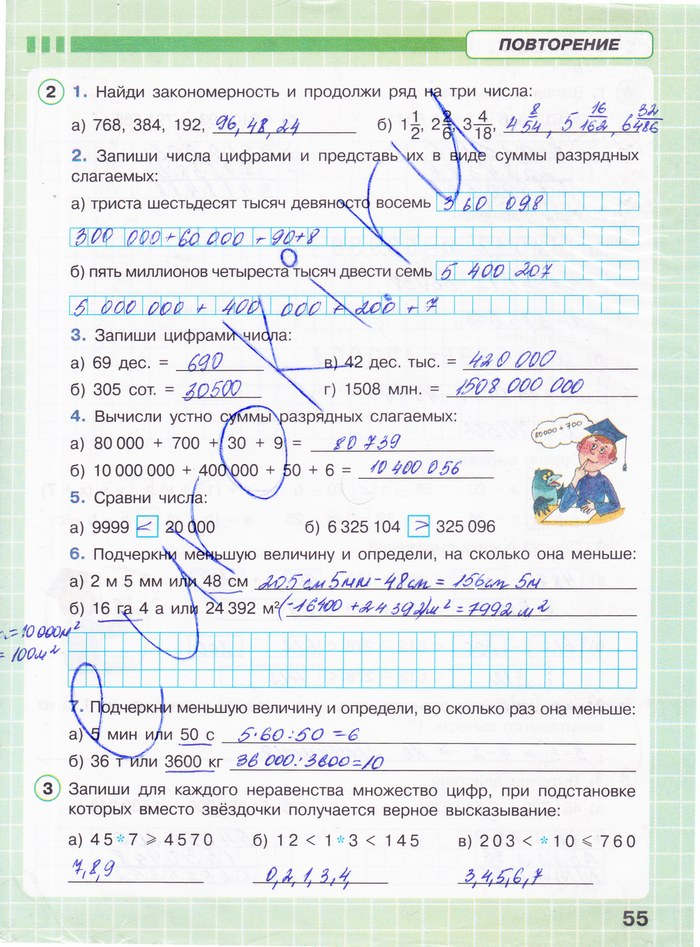 ПОВТОРЕНИЕ
2 1. Найди закономерность и продолжи ряд на три числа:
а) 768, 384, 192, 96, 48, 24 б) 1 1/2, 2 2/6, 3 4/18, 4 8/54, 5 16/162, 6 32/486
2. Запиши числа цифрами и представь их в виде суммы разрядных
слагаемых:
а) триста шестьдесят тысяч девяносто восемь 360 098
300 000 + 60 000 + 90 + 8
б) пять миллионов четыреста тысяч двести семь 5 400 207
5 000 000 + 400 000 + 200 + 7
3. Запиши цифрами числа:
а) 69 дес. = 690 в) 42 дес. тыс. = 420 000
б) 305 сот. = 30500 г) 1508 млн. = 1508 000 000
4. Вычисли устно суммы разрядных слагаемых:
а) 80 000 + 700 + 30 + 9 = 80 739
80 000 + 700
б) 10 000 000 + 400 000 + 50 + 6 = 10 400 056
5. Сравни числа:
а) 9999 < 20 000 б) 6 325 104 > 325 096
6. Подчеркни меньшую величину и определи, на сколько она меньше:
а) 2 м 5 мм или 48 см 205 см 5мм - 48см = 156см 5м
б) 16 га 4 а или 24 392 м² (-16400 + 24 392)м² = 7992 м²
= 10 000м²
= 100м²
7. Подчеркни меньшую величину и определи, во сколько раз она меньше:
а) 5 мин или 50 с 5·60:50 = 6
б) 36 т или 3600 кг 36 000:3600=10
3 Запиши для каждого неравенства множество цифр, при подстановке
которых вместо звёздочки получается верное высказывание:
а) 45*7 ⩾ 4570 б) 12 < 1*3 < 145 в) 203 < *10 ⩽ 760
7,8,9 0,2,1,3,4, 3,4,5,6,7
55